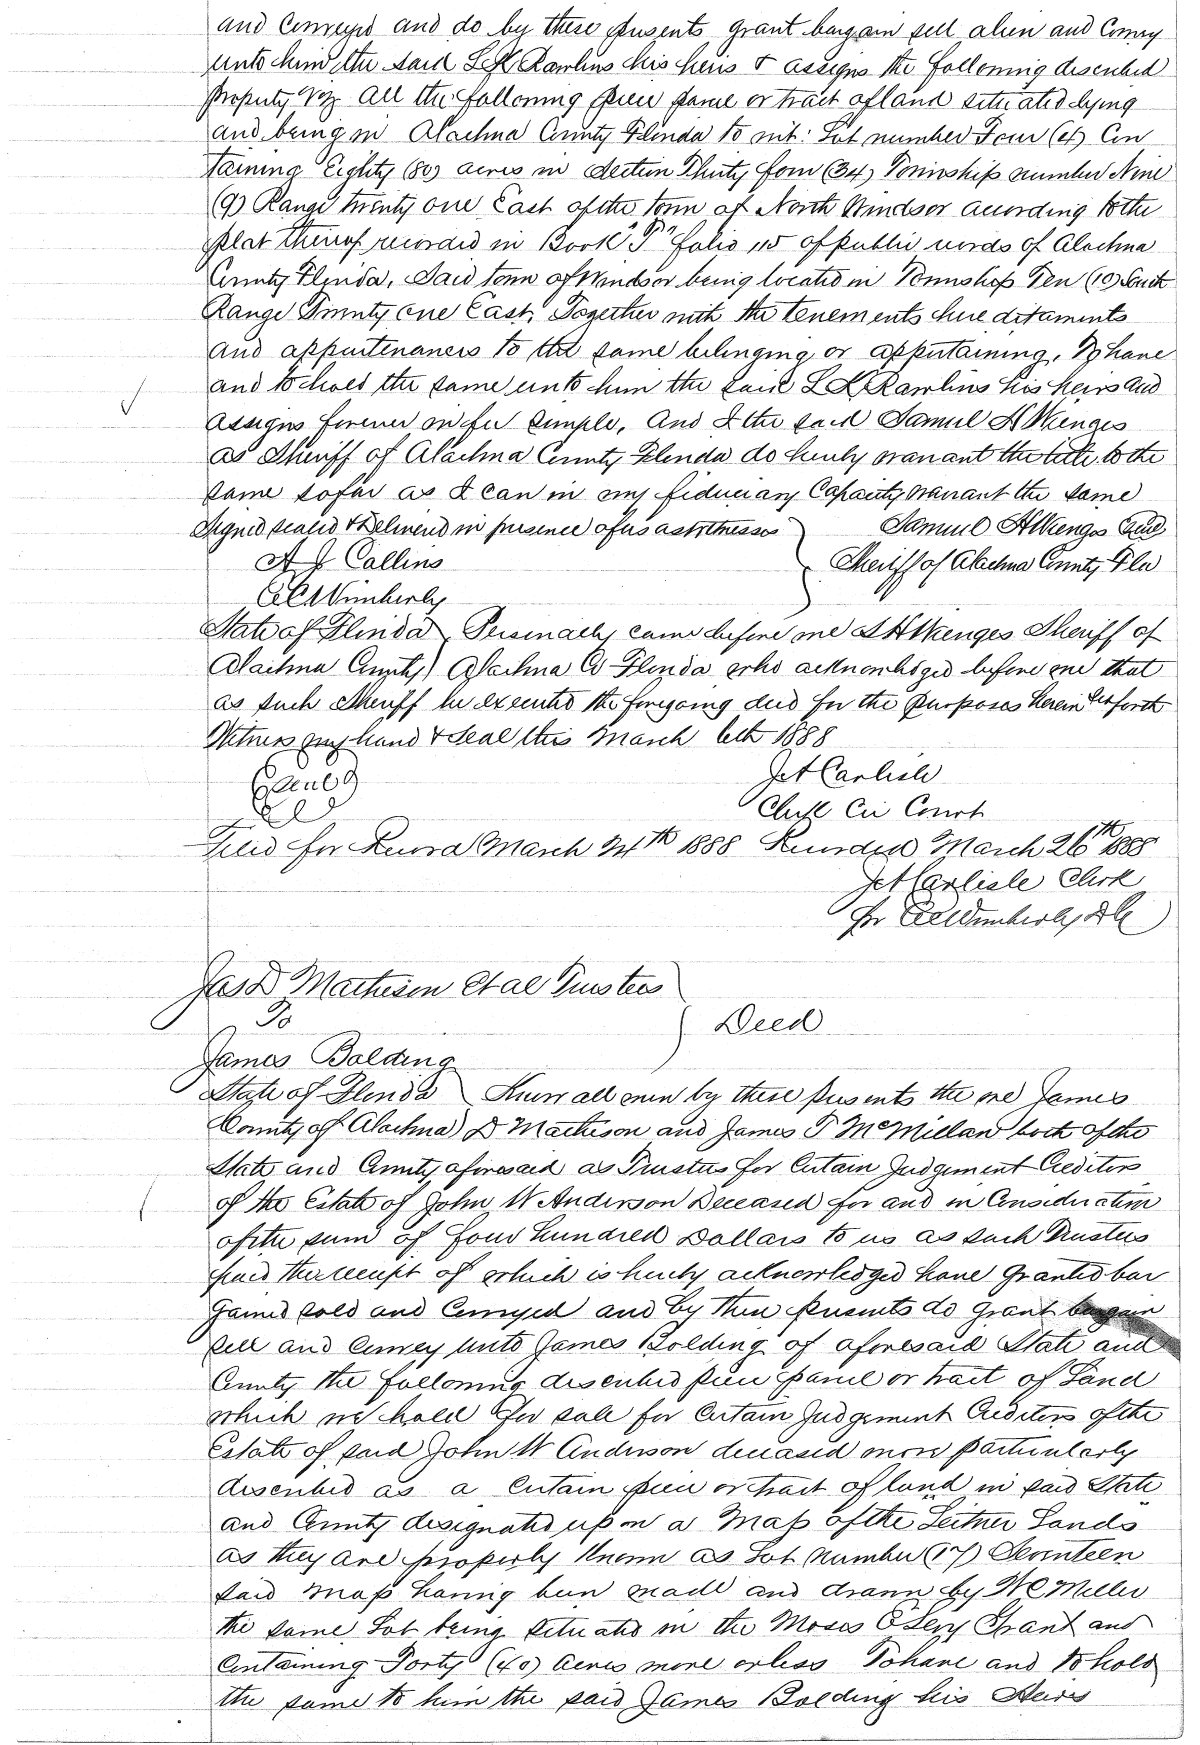 and Conveyed and do by these presents grant bargain sell alien and Convey
unto him, the said L K Rawlins his heirs & assigns the following described
property viz All the following piece parcel or tract of land situated lying
and being in Alachua County Florida to wit: Lot number Four (4) Con
taining Eighty (80) acres in Section Thirty four (34) Township number Nine
(9) Range twenty one East of the town of North Windsor according to the
plat thereof recorded in Book "P" folio 115 of public records of Alachua
County Florida, Said town of Windsor being located in Township Ten (10) South
Range Twenty one East, Together with the tenements hereditaments
and appurtenances to the same belonging or appertaining, To have
and to hold the same unto him the said L K Rawlins his heirs and
assigns forever in fee simple, And I the said Samuel H Wienges
as Sheriff of Alachua County Florida do hereby warrant the title to the
same so far as I can in my fiduciary Capacity warrant the same
Signed sealed & Delivered in presence of us as witnesses Samuel H Wienges Seal
A J Collins Sheriff of Alachua County Fla
E C Wimberly
State of Florida Personally came before me S H Wienges Sheriff of
Alachua County) Alachua Co Florida who acknowledged before me that
as such Sheriff he executed the foregoing deed for the purposes herein set forth
Witness my hand & Seal this March 6th 1888
Seal J A Carlisle
Clerk Cir Court
Filed for Record March 24th 1888 Recorded March 26th 1888
J A Carlisle Clerk
for E C Wimberly D C
Jas D Matheson Et al Trustees
To Deed
James Bolding
State of Florida Know all men by these presents the we James
County of Alachua) D Matheson and James P McMillan both of the
State and County aforesaid as Trustees for Certain Judgement Creditors
of the Estate of John W Anderson Deceased for and in Consideration
of the sum of four hundred Dollars to us as such Trustees
paid the receipt of which is hereby acknowledged have granted bar
gained sold and Conveyed and by these presents do grant bargain
sell and Convey unto James Bolding of aforesaid State and
County the following described piece parcel or tract of Land
which we hold for sale for Certain Judgement Creditors of the
Estate of said John W Anderson deceased more particularly
described as a Certain piece or tract of land in said State
and County designated upon a Map of the Leitner Lands
as they are properly known as Lot number (17) Seventeen
said map having been made and drawn by W C Miller
the same Lot being situated in the Moses E Levy Grant and
Containing Forty (40) Acres more or less To have and to hold
the same to him the said James Bolding his Heirs